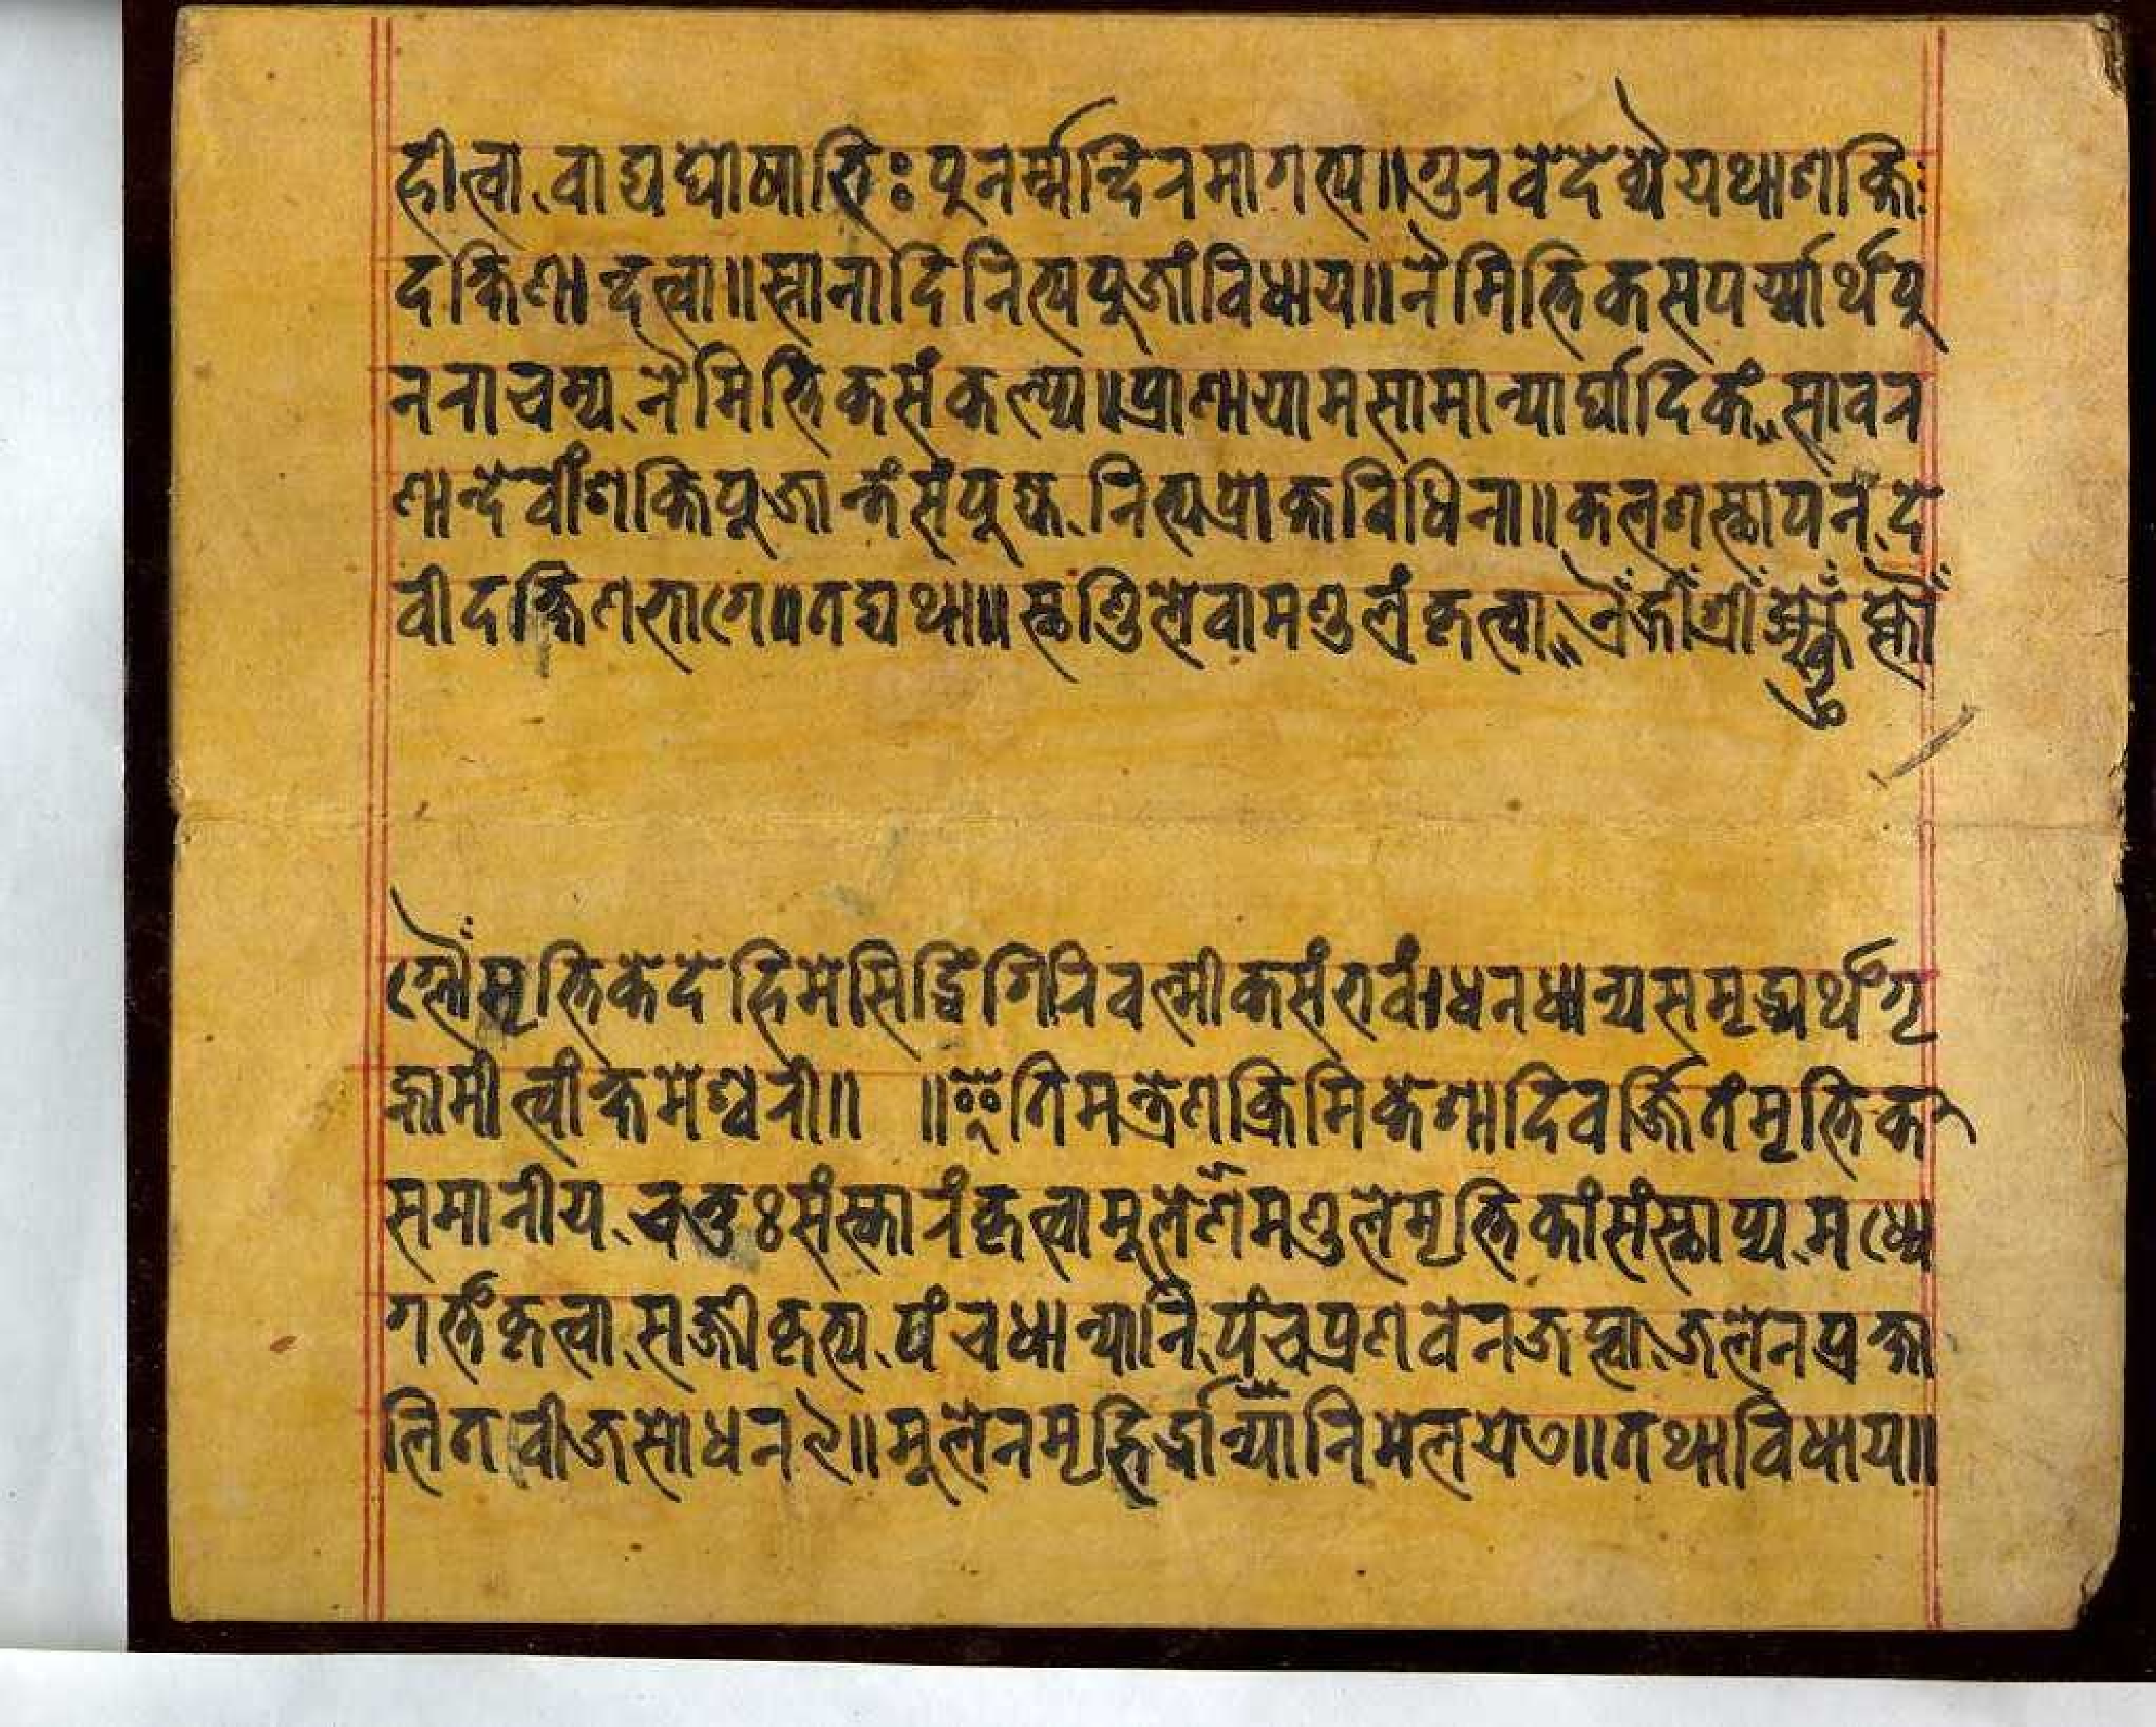 हीत्वा वाद्यघोषाभिः पुनर्म्मन्दिरमागत्य॥ गुरवे देव्यै यथाशक्तिः
दक्षिणान्दत्वा॥ स्नानादि नित्यपूजां विधाय॥ नैमित्तिकसपर्य्यार्थं पु
नराचम्य नैमित्तिकसंकल्प्य॥ प्राणायामसामान्यार्घादिकं सावर
णान्देवीं शक्तिपूजान्तं संपूज्य नित्यप्रोक्तविधिना॥ कलशस्थापनं दे
वीदक्षिणभागे॥ तद्यथा॥ स्थण्डिले वा मण्डलं कृत्वा ऐँ ह्रीँ श्रीँ
मृत्तिके देहि मे सिद्धिं गिरिवल्मीकसंभवं। धनधान्यसमृद्ध्यर्थं गृ
ह्नामी त्वां क्षमेश्वरी॥ ॥ इति मन्त्रेण क्रिमिकेशादिवर्ज्जितं मृत्तिकां
समानीय चतुःसंस्कारं कृत्वा मूलेण मण्डले मृत्तिकां संस्थाप्य मध्ये
गर्त्तं कृत्वा सज्जीकृत्य पंचधान्यानि पंचप्रणवेन जप्त्वा जलेन प्रक्षा
लित वीजसोधन २॥ मूलेन मृद्भिर्द्धान्यानि मेलयेत्॥ तथा विधाय॥